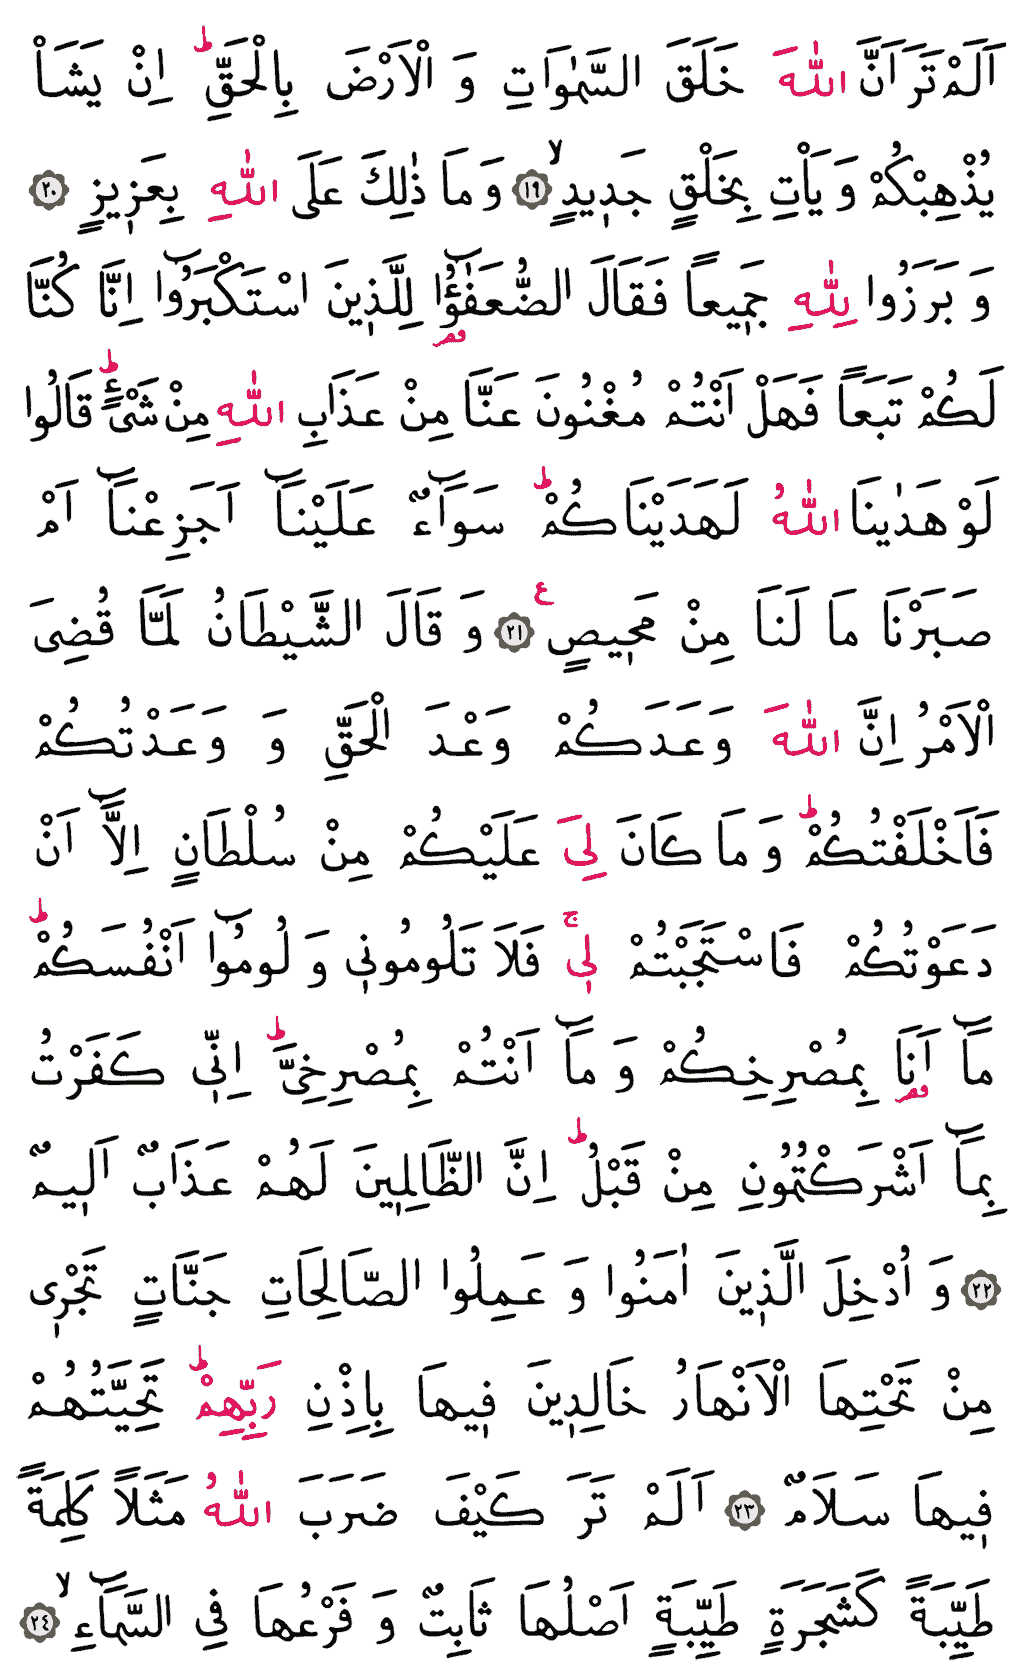 اَلَمْ تَرَ اَنَّ اللّٰهَ خَلَقَ السَّمٰوَاتِ وَ الْاَرْضَ بِالْحَقِّۜ اِنْ يَشَاْ
يُذْهِبْكُمْ وَ يَاْتِ بِخَلْقٍ جَد۪يدٍۙ ﴿١٩﴾ وَ مَا ذٰلِكَ عَلَى اللّٰهِ بِعَز۪يزٍ ﴿٢٠﴾
وَ بَرَزُوا لِلّٰهِ جَم۪يعاً فَقَالَ الضُّعَفٰٓؤُ۬ا لِلَّذ۪ينَ اسْتَكْبَرُٓوا اِنَّا كُنَّا
لَكُمْ تَبَعاً فَهَلْ اَنْتُمْ مُغْنُونَ عَنَّا مِنْ عَذَابِ اللّٰهِ مِنْ شَيْءٍۜ قَالُوا
لَوْ هَدٰينَا اللّٰهُ لَهَدَيْنَاكُمْۜ سَوَٓاءٌ عَلَيْنَٓا اَجَزِعْنَٓا اَمْ
صَبَرْنَا مَا لَنَا مِنْ مَح۪يصٍ۟ ﴿٢١﴾ وَ قَالَ الشَّيْطَانُ لَمَّا قُضِيَ
الْاَمْرُ اِنَّ اللّٰهَ وَعَدَكُمْ وَعْدَ الْحَقِّ وَ وَعَدْتُكُمْ
فَاَخْلَفْتُكُمْۜ وَ مَا كَانَ لِيَ عَلَيْكُمْ مِنْ سُلْطَانٍ اِلَّٓا اَنْ
دَعَوْتُكُمْ فَاسْتَجَبْتُمْ ل۪يۚ فَلَا تَلُومُون۪ي وَ لُومُٓوا اَنْفُسَكُمْۜ
مَٓا اَنَا۬ بِمُصْرِخِكُمْ وَ مَٓا اَنْتُمْ بِمُصْرِخِيَّۜ اِنّ۪ي كَفَرْتُ
بِمَٓا اَشْرَكْتُمُونِ مِنْ قَبْلُۜ اِنَّ الظَّالِم۪ينَ لَهُمْ عَذَابٌ اَل۪يمٌ
﴿٢٢﴾ وَ اُدْخِلَ الَّذ۪ينَ اٰمَنُوا وَ عَمِلُوا الصَّالِحَاتِ جَنَّاتٍ تَجْر۪ي
مِنْ تَحْتِهَا الْاَنْهَارُ خَالِد۪ينَ ف۪يهَا بِاِذْنِ رَبِّهِمْۜ تَحِيَّتُهُمْ
ف۪يهَا سَلَامٌ ﴿٢٣﴾ اَلَمْ تَرَ كَيْفَ ضَرَبَ اللّٰهُ مَثَلاً كَلِمَةً
طَيِّبَةً كَشَجَرَةٍ طَيِّبَةٍ اَصْلُهَا ثَابِتٌ وَ فَرْعُهَا فِي السَّمَٓاءِۙ ﴿٢٤﴾